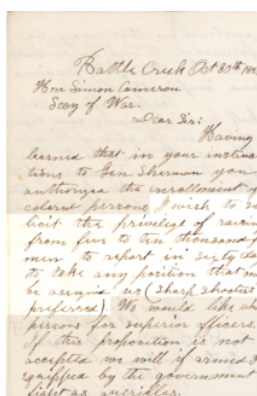 Battle Creek Oct 30th 186
Hon Simon Cameron
Secy of War.
Dear Sir:
Having
learned that in your instruc
tions to Gen Sherman you
authorized the enrollment of
colored persons I wish to so
licit the privilege of raising
from five to ten thousand
men to report in sixty days
to take any position that may
be assigned us (Sharp Shooters
preferred). We would like white
persons for superior officers.
If this proposition is not
accepted we will if armed &
equipped by the government
fight as guerillas.